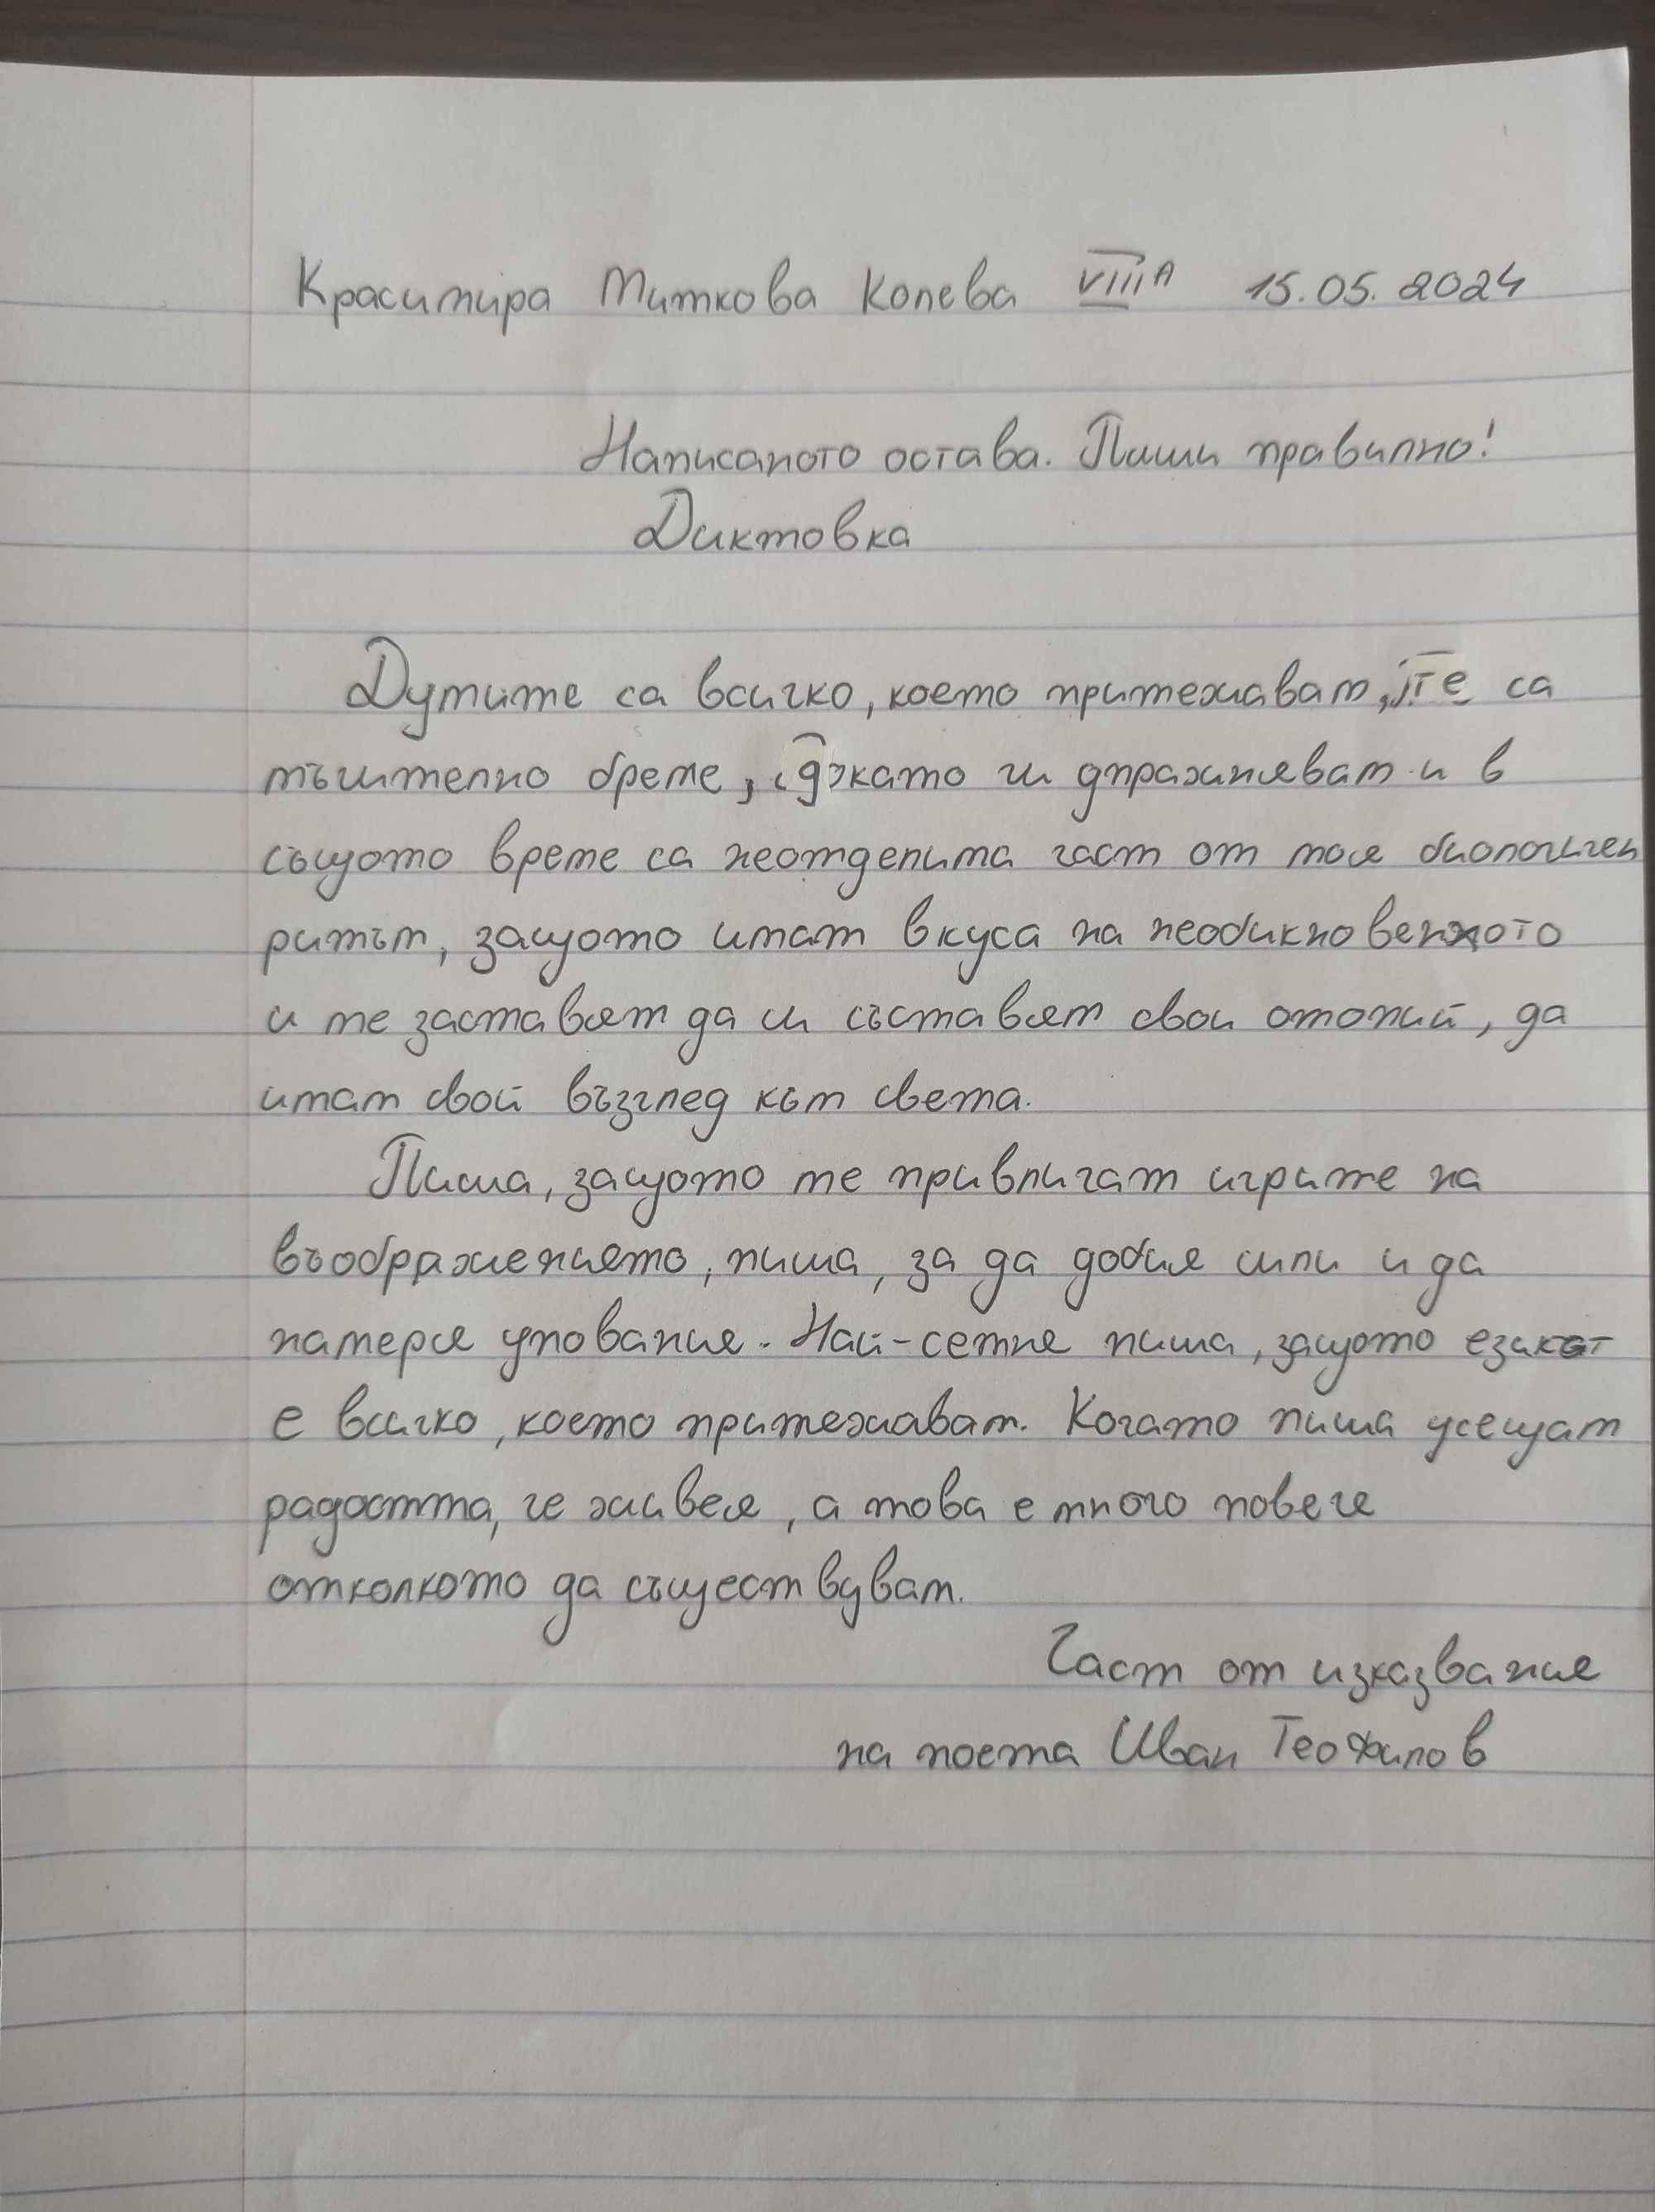 Красимира Миткова Колева VIII A 15.05.2024
Написаното остава. Пиши правилно!
Диктовка
Думите са всичко, което притежавам, те са
мъчително бреме, докато ги упражнявам и в
същото време са неотделима част от моя биологичен
ритъм, защото имат вкуса на необикновеното
и ме заставят да си съставям свои отопий, да
имам свой възглед към света.
Пиша, защото ме привличат игрите на
въображението, пиша, за да добия сили и да
намеря упования. Най-сетне пиша, защото езикът
е всичко, което притежавам. Когато пиша усещам
радостта, че живея, а това е много повече
отколкото да съществувам.
Част от изказвания
на поета Иван Теофилов